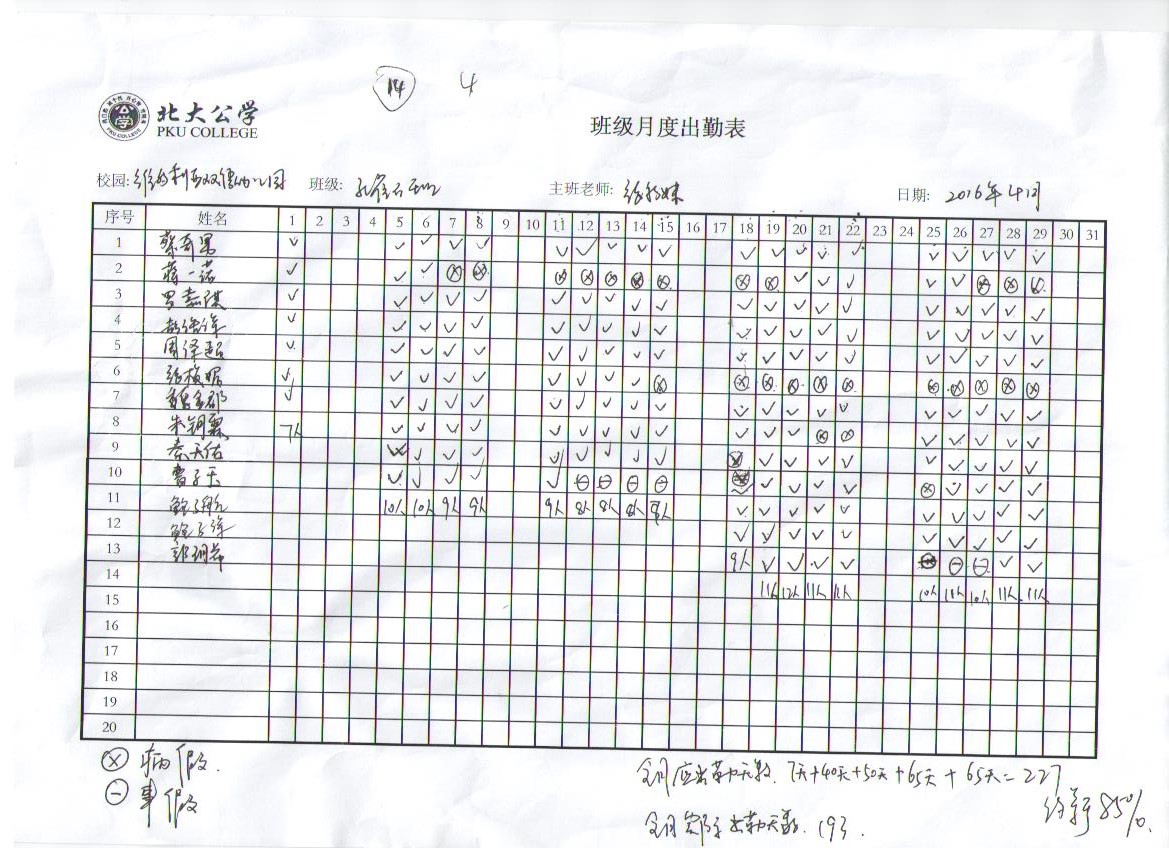 14 4
北大公学
PKU COLLEGE
班级月度出勤表
校园: 班级: 主班老师: 日期: 2016年4月
序号 姓名 1 2 3 4 5 6 7 8 9 10 11 12 13 14 15 16 17 18 19 20 21 22 23 24 25 26 27 28 29 30 31
1 ✓ ✓ ✓ ✓ ✓ ✓ ✓ ✓ ✓ ✓ ✓ ✓ ✓ ✓ ✓ ✓ ✓ ✓ ✓ ✓
2 蒋一诺 ✓ ✓ ✓ ⊗ ⊗ ⊗ ⊗ ⊗ ⊗ ⊗ ⊗ ⊗ ✓ ✓ ✓ ✓ ✓ ⊗ ⊗
3 ✓ ✓ ✓ ✓ ✓ ✓ ✓ ✓ ✓ ✓ ✓ ✓ ✓ ✓ ✓ ✓ ✓ ✓ ✓ ✓
4 ✓ ✓ ✓ ✓ ✓ ✓ ✓ ✓ ✓ ✓ ✓ ✓ ✓ ✓ ✓ ✓ ✓ ✓ ✓ ✓
5 周泽超 ✓ ✓ ✓ ✓ ✓ ✓ ✓ ✓ ✓ ✓ ✓ ✓ ✓ ✓ ✓ ✓ ✓ ✓ ✓ ✓
6 ✓ ✓ ✓ ✓ ✓ ✓ ✓ ✓ ✓ ⊗ ⊗ ⊗ ⊗ ⊗ ⊗ ⊗ ⊗ ⊗ ⊗ ⊗
7 ✓ ✓ ✓ ✓ ✓ ✓ ✓ ✓ ✓ ✓ ✓ ✓ ✓ ✓ ✓ ✓ ✓ ✓ ✓ ✓
8 7人 ✓ ✓ ✓ ✓ ✓ ✓ ✓ ✓ ✓ ✓ ✓ ✓ ⊗ ⊗ ✓ ✓ ✓ ✓ ✓
9 秦天佑 ✓ ✓ ✓ ✓ ✓ ✓ ✓ ✓ ✓ ⊗ ✓ ✓ ✓ ✓ ✓ ✓ ✓ ✓ ✓
10 曹子天 ✓ ✓ ✓ ✓ ✓ ⊖ ⊖ ⊖ ⊖ ✓ ✓ ✓ ✓ ⊗ ✓ ✓ ✓ ✓
11 10人 10人 9人 9人 9人 8人 8人 8人 8人 ✓ ✓ ✓ ✓ ✓ ✓ ✓ ✓ ✓ ✓
12 ✓ ✓ ✓ ✓ ✓ ✓ ✓ ✓ ✓ ✓
13 9人 ✓ ✓ ✓ ✓ ⊖ ⊖ ✓ ✓
14 11人 12人 11人 11人 10人 11人 10人 11人 11人
15
16
17
18
19
20
⊗ 病假.
⊖ 事假
全月应出勤天数. 7天+40天+50天+65天+65天=227
全月实际出勤天数. 193.
85%.